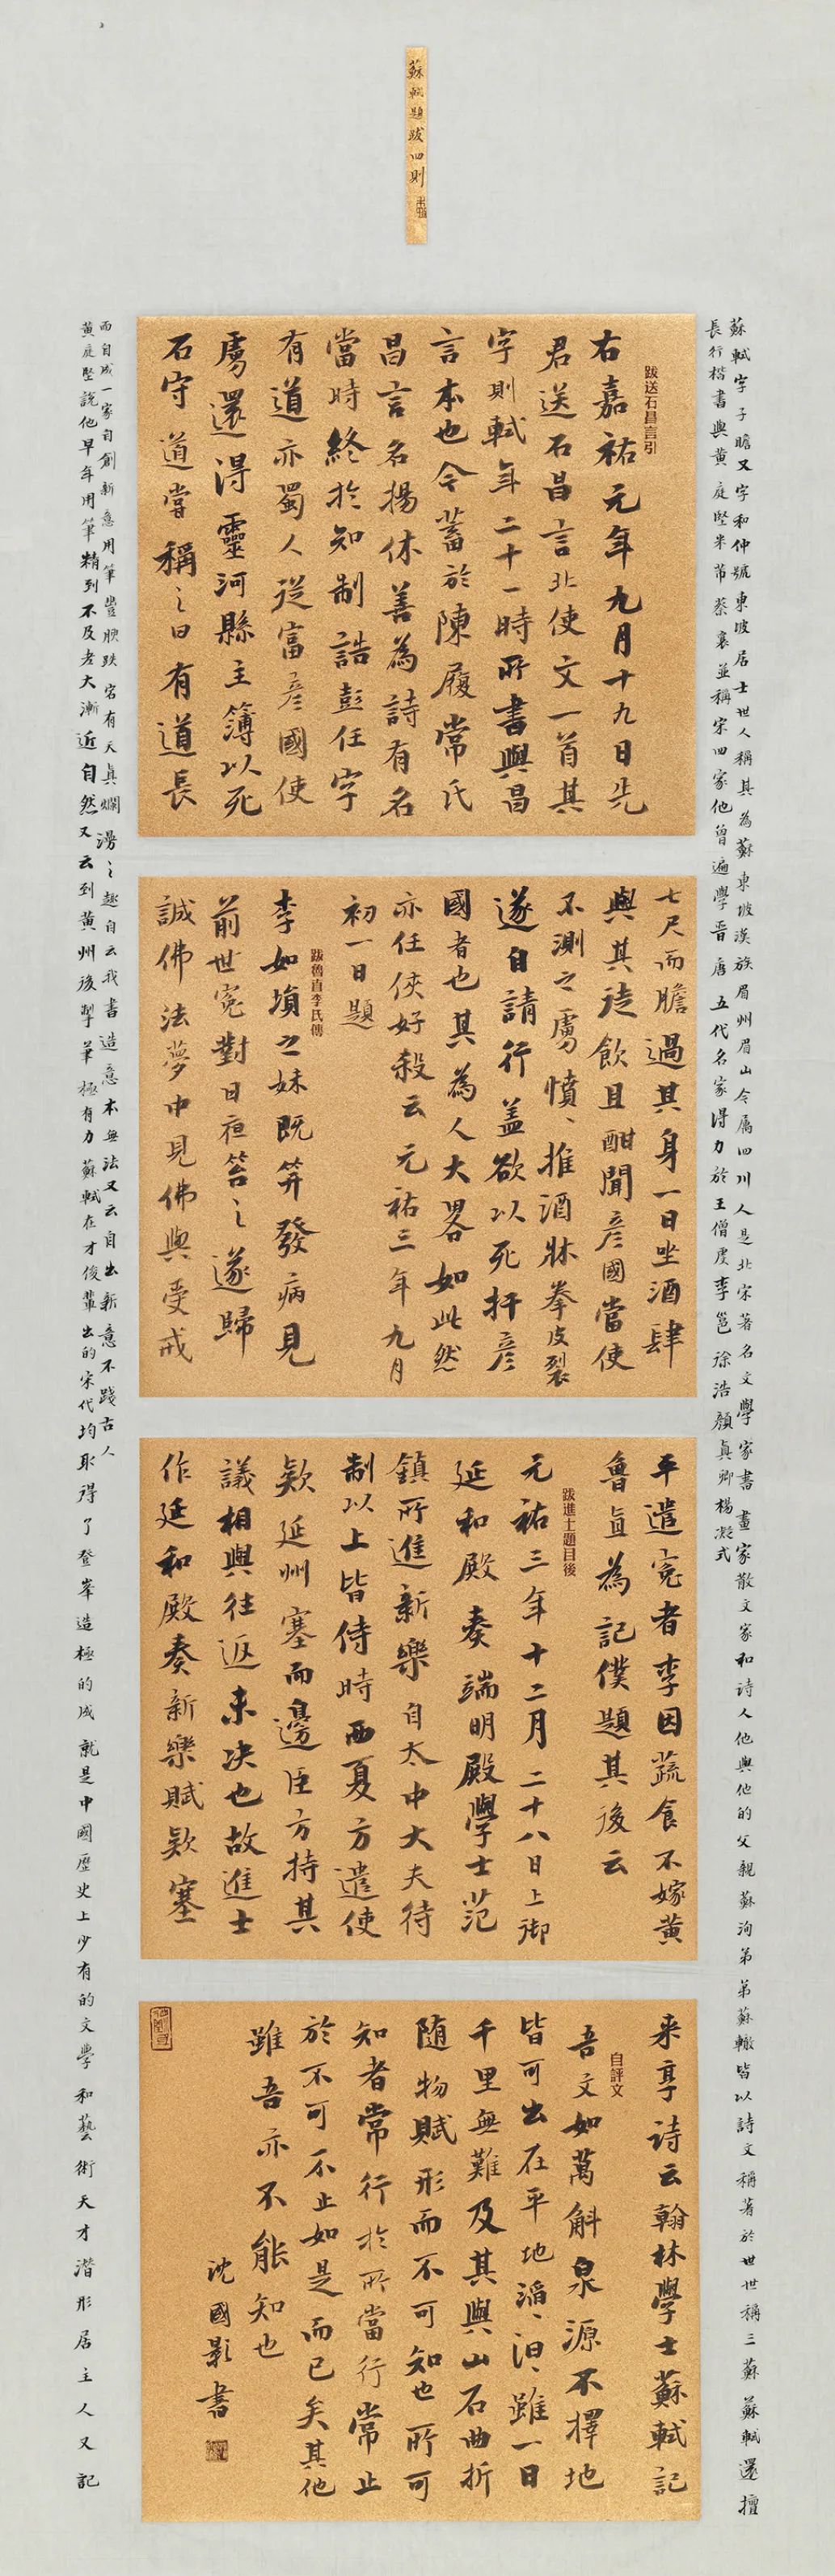 蘇軾題跋四則
跋送石昌言引
右嘉祐元年九月十九日先
君送石昌言北使文一首其
字則軾年二十一時所書與昌
言本也今蓄於陳履常氏
昌言名揚休善為詩有名
當時終於知制誥彭任字
有道亦蜀人從富彥國使
虜還得靈河縣主簿以死
石守道嘗稱之曰有道長
七尺而膽過其身一日坐酒肆
與其徒飲且酣聞彥國當使
不測之虜憤憤推酒牀拳皮裂
遂自請行蓋欲以死扞彥
國者也其為人大畧如此然
亦任俠好殺云元祐三年九月
初一日題
跋魯直李氏傳
李如塤之妹既笄發病見
前世冤對日夜笞之遂歸
誠佛法夢中見佛與受戒
平遣冤者李因蔬食不嫁黃
魯直為記僕題其後云
跋進士題目後
元祐三年十二月二十八日上御
延和殿奏端明殿學士范
鎮所進新樂自太中大夫待
制以上皆侍時西夏方遣使
欵延州塞而邊臣方持其
議相與往返未决也故進士
作延和殿奏新樂賦欵塞
来享詩云翰林學士蘇軾記
自評文
吾文如萬斛泉源不擇地
皆可出在平地滔滔汩汩雖一日
千里無難及其與山石曲折
随物賦形而不可知也所可
知者常行於所當行常止
於不可不止如是而已矣其他
雖吾亦不能知也
沈國影書
蘇軾字子瞻又字和仲號東坡居士世人稱其為蘇東坡漢族眉州眉山今屬四川人是北宋著名文學家書畫家散文家和詩人他與他的父親蘇洵弟弟蘇轍皆以詩文稱著於世世稱三蘇蘇軾還擅
長行楷書與黃庭堅米芾蔡襄並稱宋四家他曾遍學晉唐五代名家得力於王僧虔李邕徐浩顏真卿楊凝式
而自成一家自創新意用筆豐腴跌宕有天真爛漫之趣自云我書造意本無法又云自出新意不踐古人
黃庭堅說他早年用筆精到不及老大漸近自然又云到黃州後掣筆極有力蘇軾在才俊輩出的宋代均取得了登峯造極的成就是中國歷史上少有的文學和藝術天才潛形居主人又記